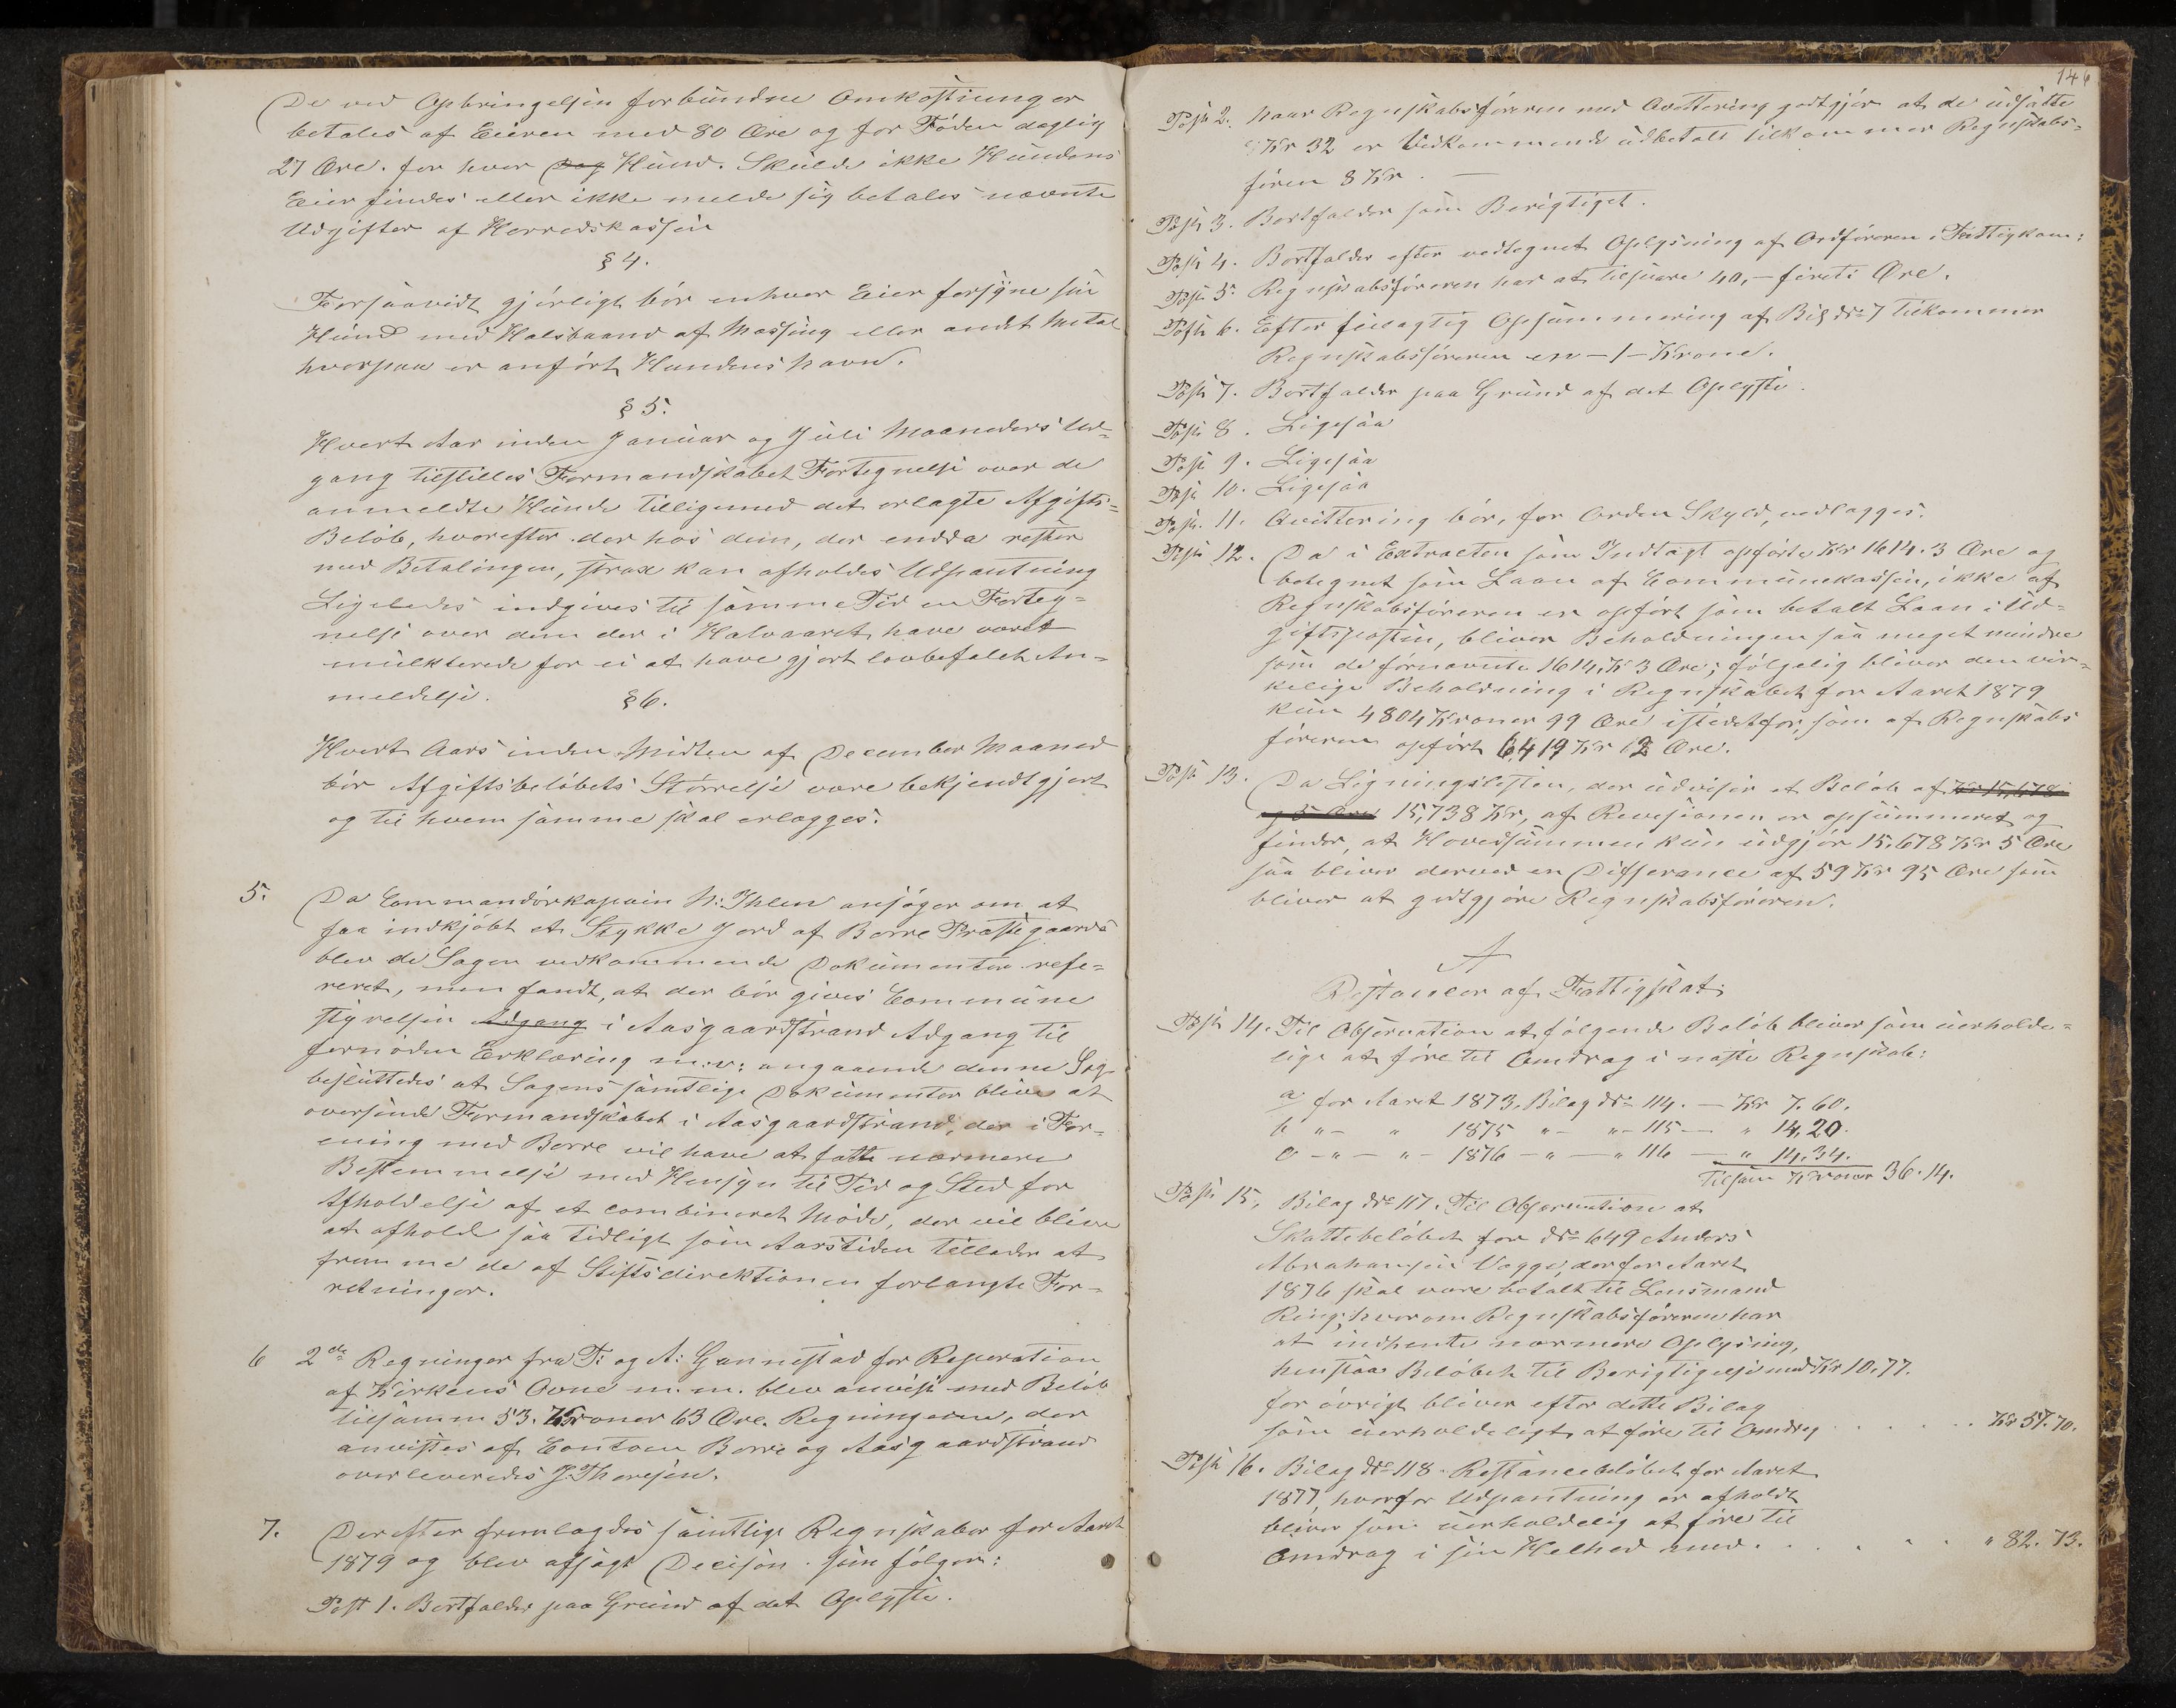 De ved Opbringelsen forbundne Omkostninger
betales af Eieren med 80 Øre og for Føden daglig
27 Øre. for hver Dag Hund. Skulde ikke Hundens
Eier findes eller ikke melde sig betales nævnte
Udgifter af Herredskassen
§ 4.
Forsaavidt gjørligt bør enhver Eier forsyne sin
Hund med Halsbaand af Messing eller andet Metal
hvorpaa er anført Hundens Navn.
§ 5.
Hvert Aar inden Januar og Juli Maaneders Ud-
gang tilstilles Formandskabet Fortegnelse over de
anmeldte Hunde tilligemed det erlagte Afgifts-
Beløb, hvorefter der hos dem, der endda rester
med Betalingen, strax kan afholdes Udpantning
Ligeledes indgives til samme Tid en Forteg-
nelse over dem der i Halvaaret have været
mulkterede for ei at have gjort lovbefalet An-
meldelse.
§ 6.
Hvert Aars inden Midten af December Maaned
bør Afgiftsbeløbets Størrelse være bekjendtgjort
og til hvem samme skal erlægges.
5. Da Commandørkaptein N: Ihlen ansøger om at
faa indkjøbt et Stykke Jord af Borre Præstegaard
blev de Sagen vedkommende Dokumenter refe-
reret, men fandt, at der bør gives Commune
styrelsen Adgang i Aasgaardstrand Adgang til
fornøden Erklæring m: v: angaaende denne Sag
besluttedes at Sagens samtlige Dokumenter blive at
oversende Formandskabet i Aasgaardstrand, der i For-
ening med Borre vil have at fatte nærmere
Bestemmelse med Hensyn til Tid og Sted for
Afholdelse af et combineret Møde, der vil blive
at afholde saa tidligt som Aarstiden tillader at
fremme de af Stiftsdirektionen forlangte For-
retninger.
6 2de Regninger fra T: og A: Gannestad for Reparation
af Kirkens Ovne m. m. blev anvist med Beløb
tilsamm 53. Kroner 63 Øre. Regningerne, der
anvistes af Contoen Borre og Aasgaardstrand
overleveredes J. Thoresen.
7. Derefter fremlagdes samtlige Regnskaber for Aaret
1879 og blev afsagt Decision som følger:
Post 1. Bortfalder paa Grund af det Oplyste.
146
Post 2. Naar Regnskabsføreren med Qvittering godtgjør at de udsatte
Kr 32 er Vedkommende udbetalt tilkommer Regnskabs-
føren 8 Kr. —
Post 3. Bortfalder som Berigtiget.
Post 4. Bortfalder efter vedtegnet Oplysning af Ordføreren i Fattigkom:
Post 5. Regnskabsføreren har at tilsvare 40,— førti Øre.
Post 6. Efter feilagtig Opsummering af Bil No 7 tilkommer
Regnskabsføreren en —1— Krone.
Post 7. Bortfalder paa Grund af det Oplyste.
Post 8. Ligesaa
Post 9. Ligesaa
Post 10. Ligesaa
Post. 11. Qvittering bør, for Orden Skyld, vedlægges.
Post 12. Da i Extracten som Indtægt opførte Kr 1614. 3 Øre og
betegnet som Laan af Communekassen, ikke af
Regnskabsføreren er opført som betalt Laan i Ud-
giftsposten, bliver Beholdningen saa meget mindre
som de førnævnte 1614, Kr 3 Øre; følgelig bliver den vir-
kelige Beholdning i Regnskabet for Aaret 1879
kun 4804 Kroner 99 Øre istedetfor, som af Regnskabs
føreren opført 6,419 Kr 2 Øre.
Post 13. Da Ligningslisten, der udviser et Beløb af Kr 15,678
og 5 Øre 15,738 Kr, af Revisionen er opsummeret og
finder, at Hovedsummen kun udgjør 15,678 Kr 5 Øre
saa bliver derved en Differance af 59 Kr 95 Øre som
bliver at godtgjøre Regnskabsføreren.
A
Restancer af Fattigskat.
Post 14. Til Observation at følgende Beløb bliver som uerholde-
lige at føre til Omdrag i næste Regnskab:
a for Aaret 1873, Bilag No 114. — Kr 7. 60.
b " — " 1875 " — " — 115 — " 14,20.
c — " — " — 1876 — " — " 116 — " 14. 34.
Tilsam Kroner 36. 14.
Post 15, Bilag No 117. Til Observation at
Skattebeløbet for No 649 Anders
Abrahamsen Vagge, der for Aaret
1876 skal være betalt til Lensmand
Ring, hvorom Regnskabsføreren har
at indhente nærmere Oplysning,
henstaa Beløbet til Berigtigelse med Kr 10. 77.
for øvrigt bliver efter dette Bilag
som uerholdeligt at føre til Omdrag . . . . . . Kr 57. 70.
Post 16. Bilag No 118. Restancebeløbet for Aaret
1877, hvorfor Udpantning er afholdt
bliver som uerholdelig at føre til
Omdrag i sin Helhed med . . . . . " 82. 73.